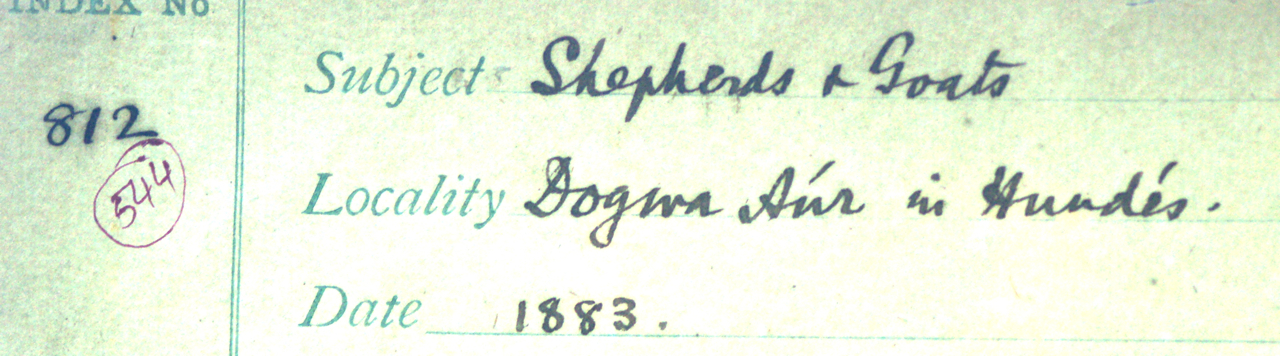 INDEX No
812
544
Subject Shepherds & Goats
Locality Dogwa Aúr in Hundés.
Date 1883.